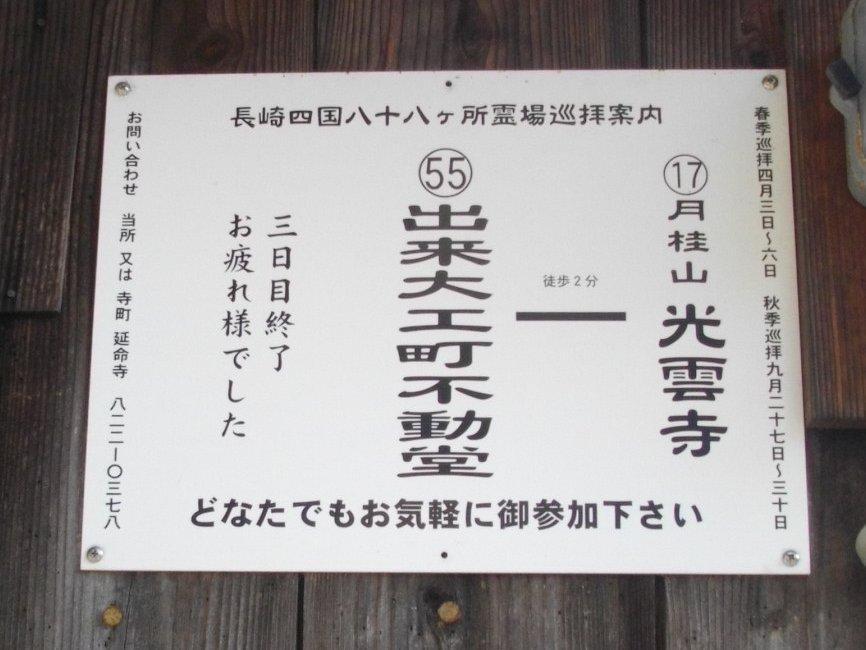 長崎四国八十八ヶ所霊場巡拝案内
春季巡拝四月三日～六日 秋季巡拝九月二十七日～三十日
⑰月桂山 光雲寺
徒歩2分
㊺出来大工町不動堂
三日目終了
お疲れ様でした
お問い合わせ 当所 又は 寺町 延命寺 八二二ー〇三七八
どなたでもお気軽に御参加下さい